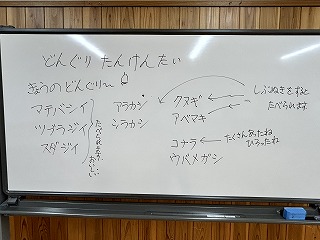 どんぐり たんけんたい
きょうのどんぐり〜
マテバシイ
ツブラジイ
スダジイ
たべられます
おいしい
アラカシ
シラカシ
クヌギ
アベマキ
しぶぬきをすると
たべられます
コナラ
ウバメガシ
たくさんあったね
ひろったね